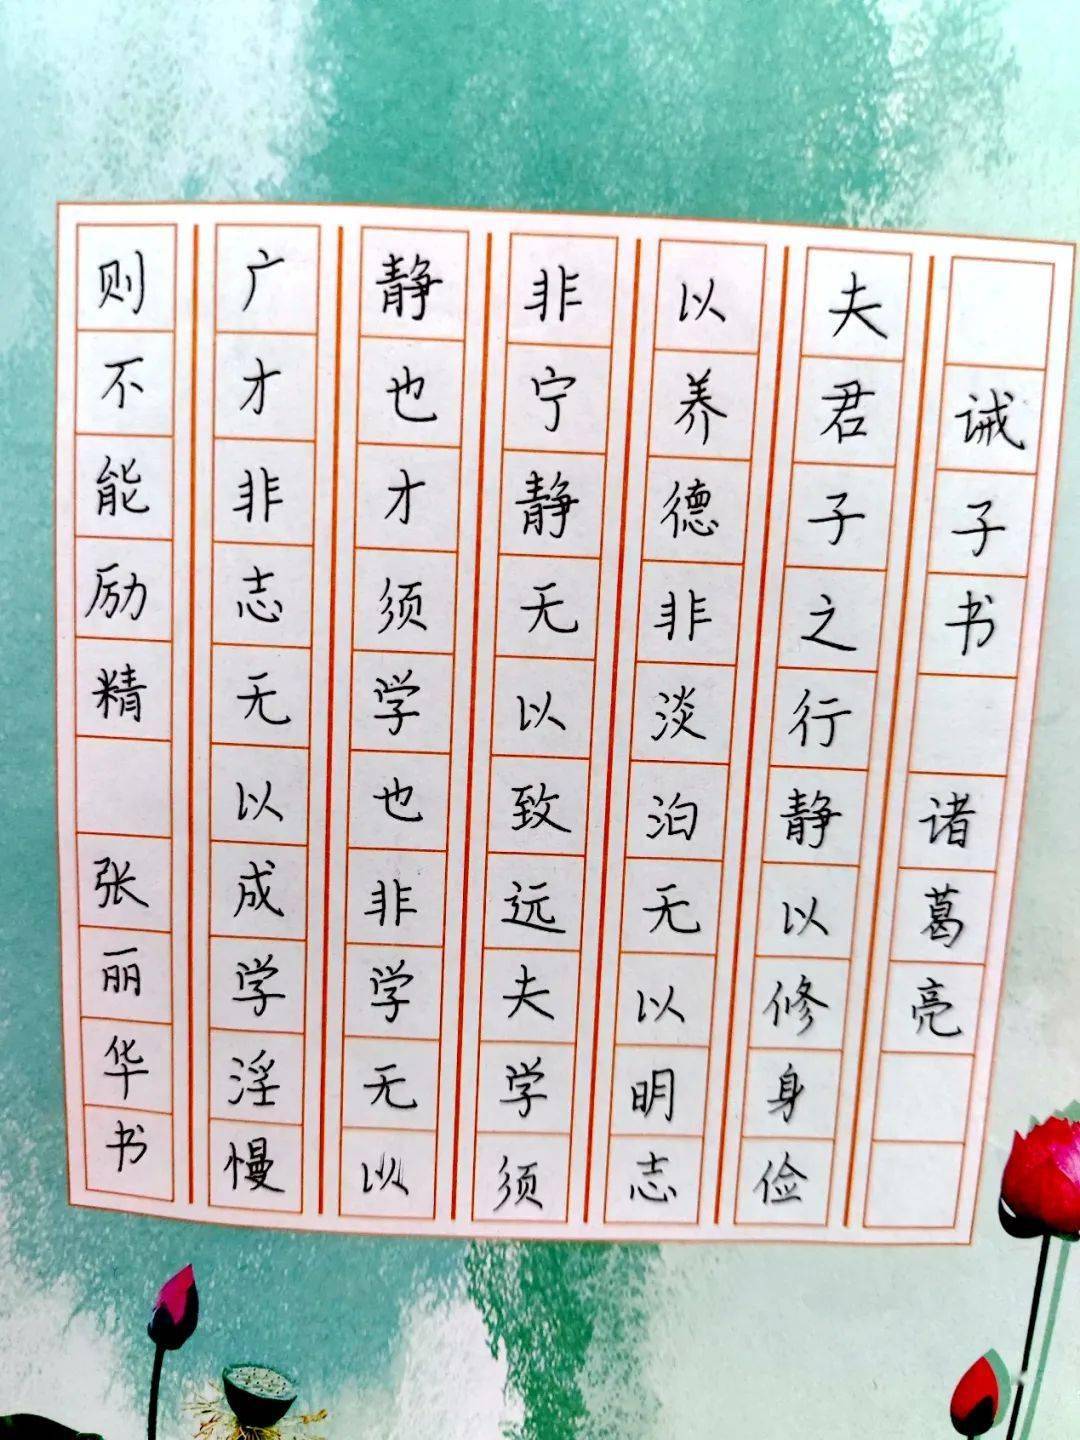 诫子书 诸葛亮
夫君子之行静以修身俭
以养德非淡泊无以明志
非宁静无以致远夫学须
静也才须学也非学无以
广才非志无以成学淫慢
则不能励精 张丽华书